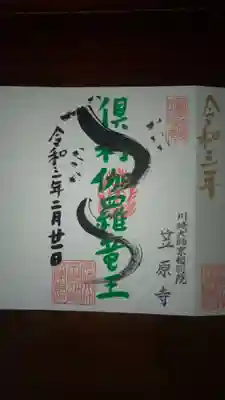 令和三年
川崎大師京都別院
笠原寺
倶利伽羅竜王
令和三年二月廿一日